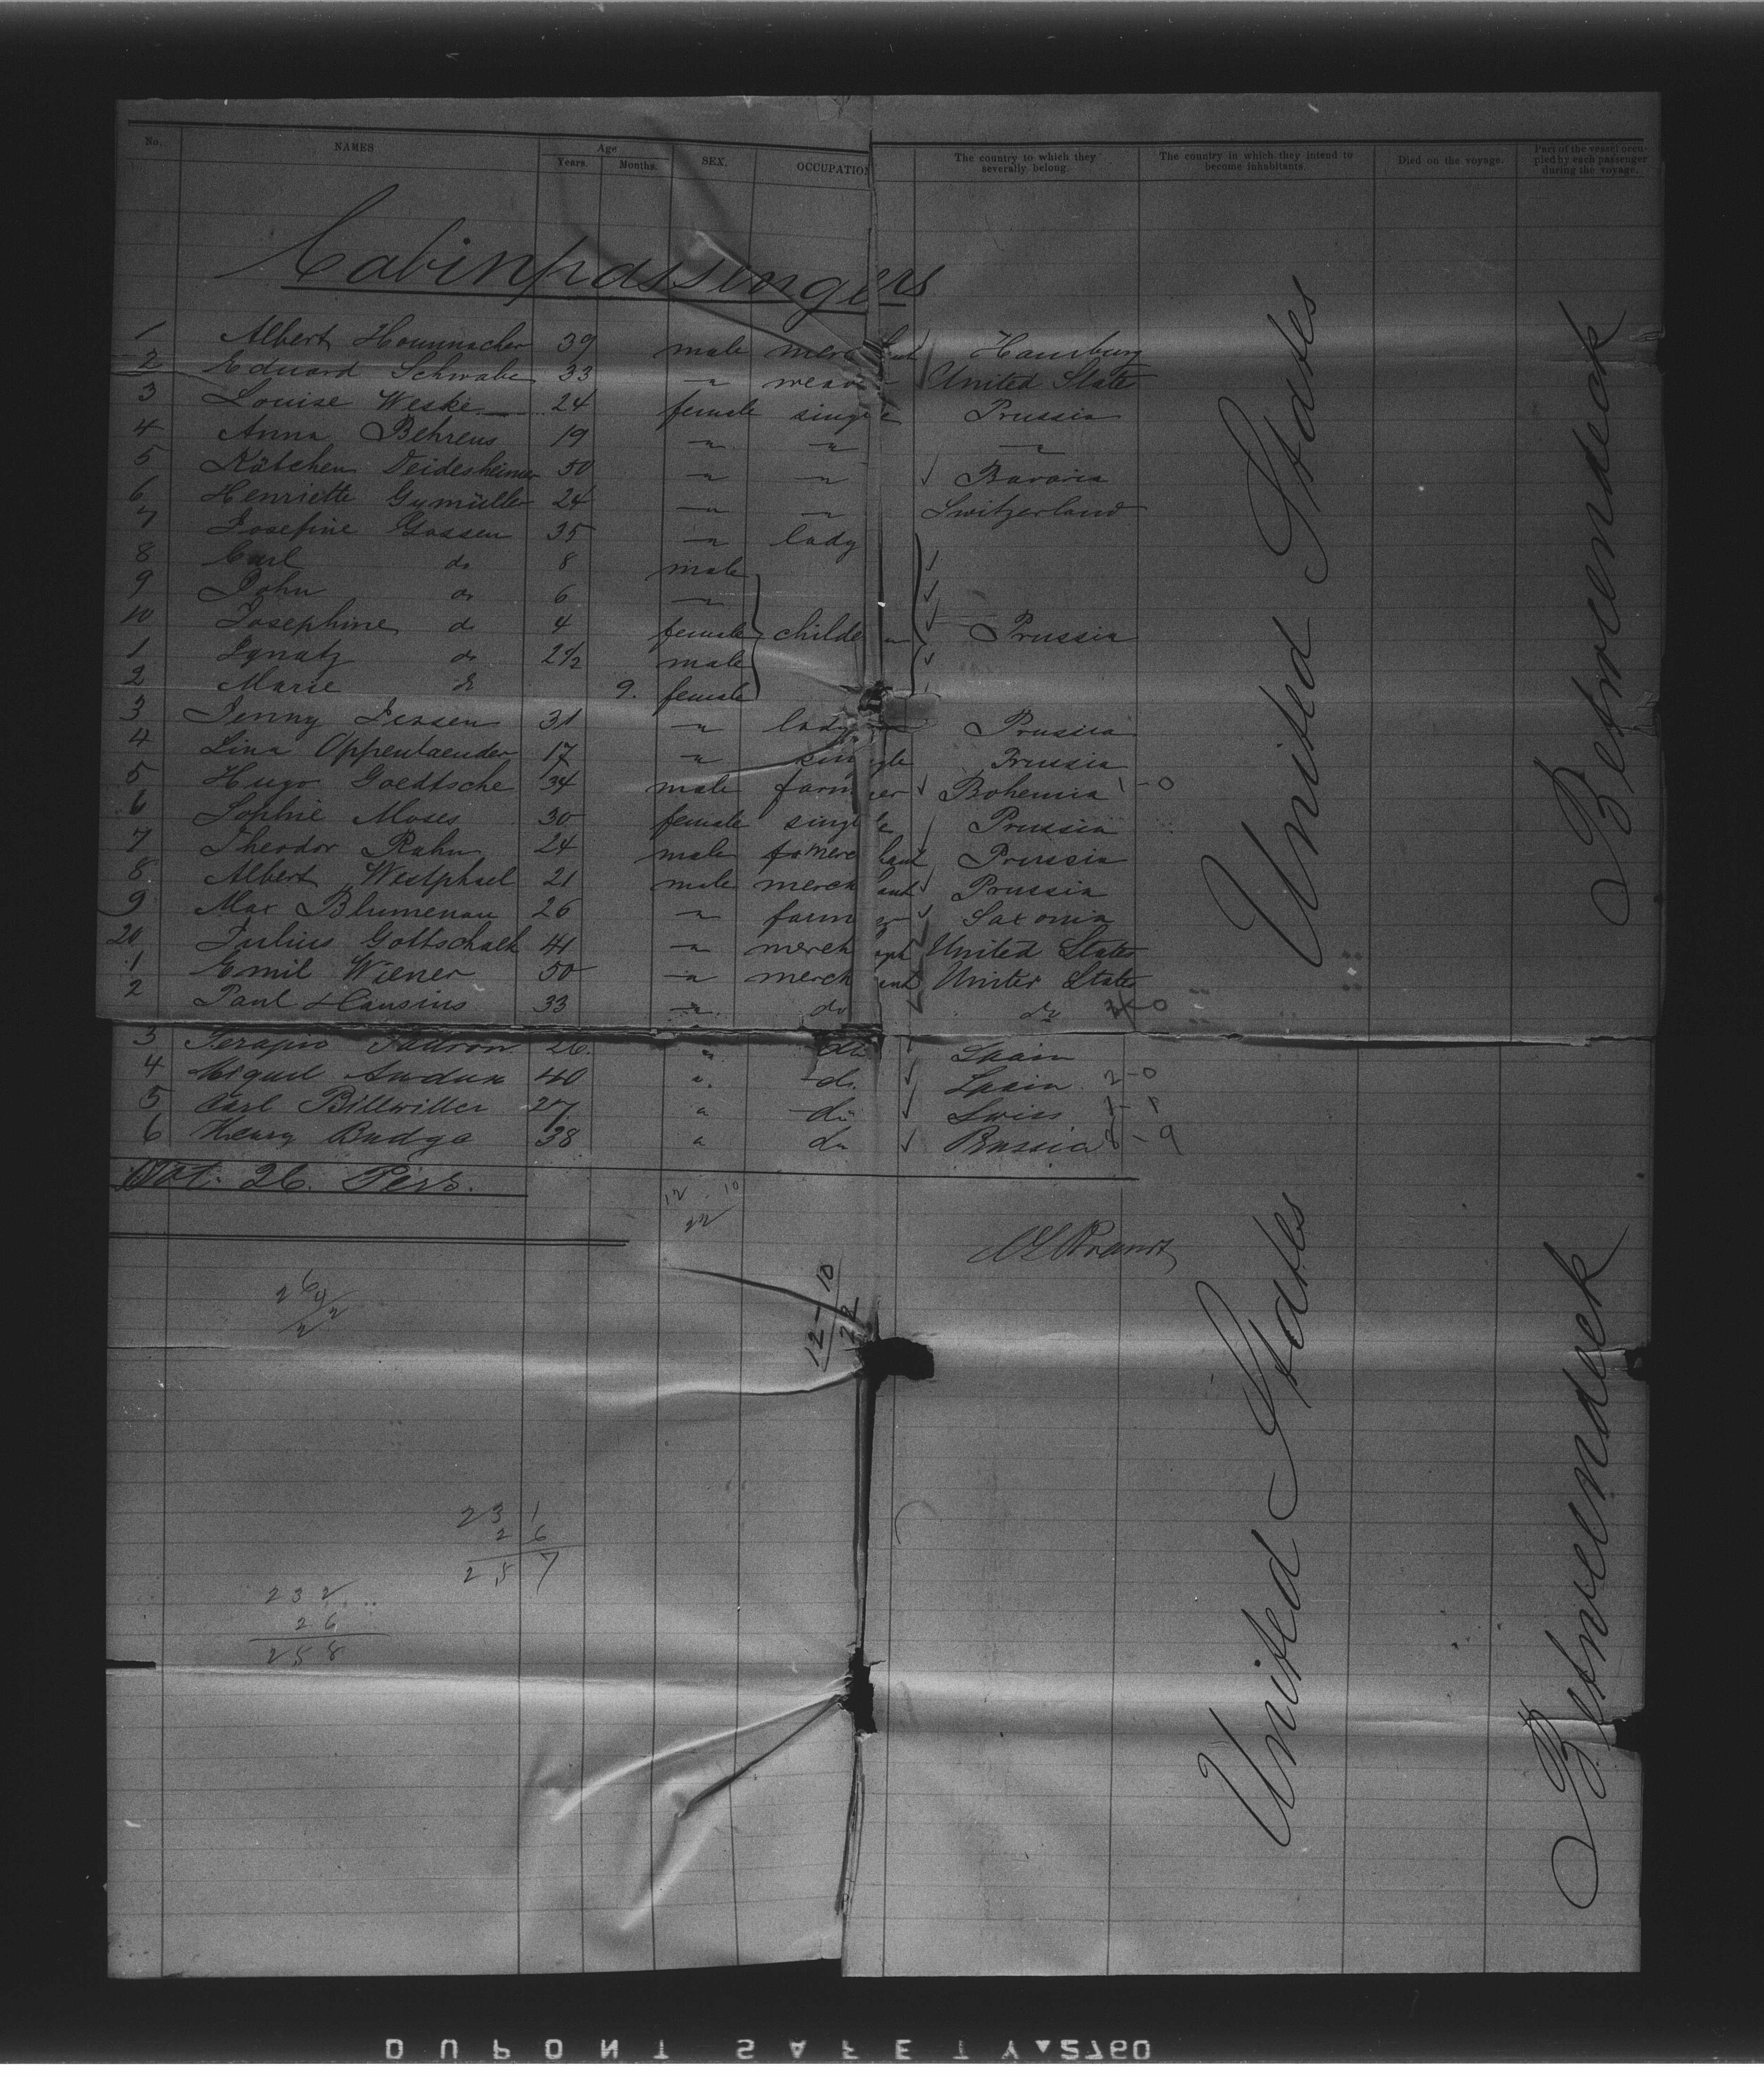 No. NAMES Age Years. Months. SEX. OCCUPATION The country to which they severally belong. The country in which they intend to become inhabitants. Died on the voyage. Part of the vessel occupied by each passenger during the voyage.
Cabinpassingers
1 Albert 39 male merchant Hamburg
2 Eduard Schwabe 33 " United State
3 Louise Weske 24 female single Prussia
4 Anna Behrens 19 " " "
5 Kätchen Deidesheimer 50 " " Bavaria
6 Henriette Gymüller 24 " " Switzerland
7 Josefine Gossen 35 " lady
8 Carl do 8 male
9 John do 6 "
10 Josephine do 4 female children Prussia
1 Ignatz do 2 1/2 male
2 Marie do 9. female
3 Jenny Jessen 31 " lady Prussia
4 Lina 17 " single Prussia
5 Hugo Goedtsche 34 male farmer Bohemia 1-0
6 Sophie Moses 30 female single Prussia
7 Theodor Rahn 24 male merchant Prussia
8 Albert Westphael 21 male merchant Prussia
9 Max Blumenau 26 " farmer Saxonia
20 Julius Gottschalk 41 " merchant United States
1 Emil Wiener 50 " merchant Uniter State
2 Paul Hansins 33 " do do
3 26 " do Spain
4 Miguel 40 " do. Spain 2-0
5 Carl Billwiller 27 " do Swiss
6 Henry Budge 38 " do Russia 8-9
26. Pers.
United States
Betweendeck
12-10
22
12-10
22
United States
Betweendeck
231
26
257
232
26
258
DUPONT SAFETY▲2760